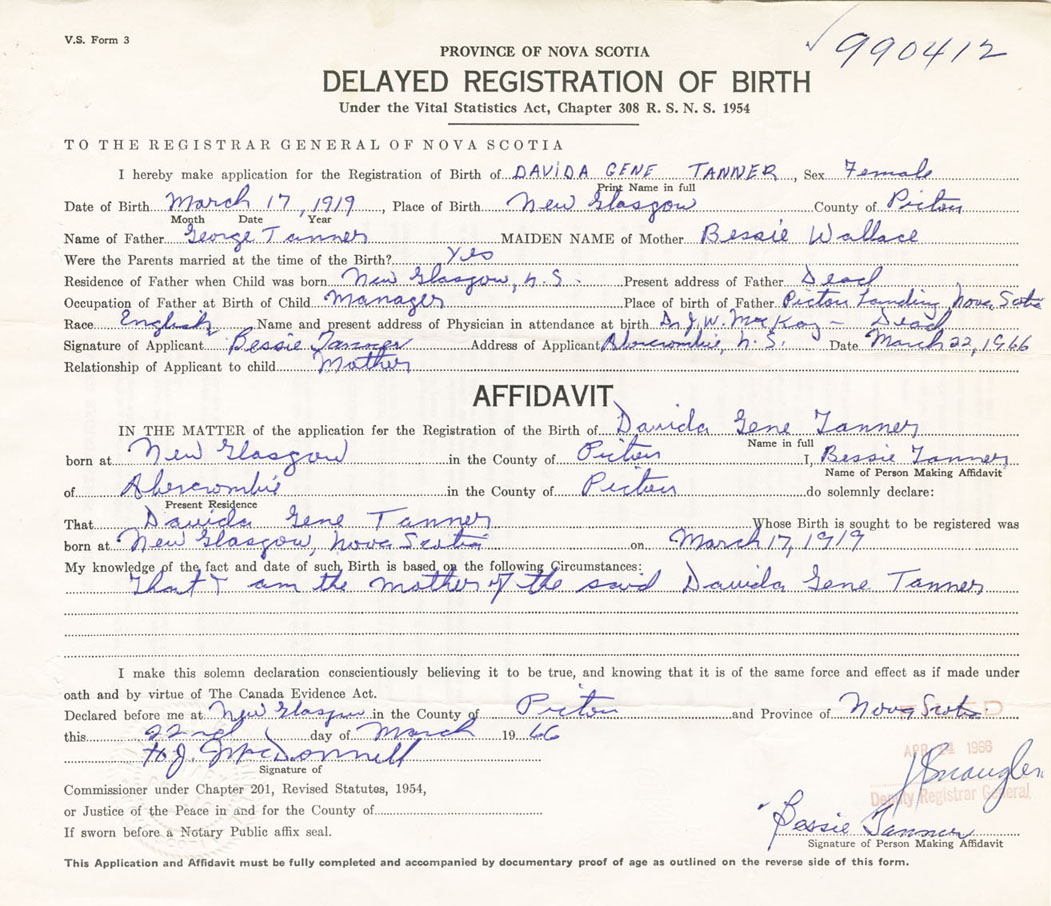 V.S. Form 3
990412
PROVINCE OF NOVA SCOTIA
DELAYED REGISTRATION OF BIRTH
Under the Vital Statistics Act, Chapter 308 R. S. N. S. 1954
TO THE REGISTRAR GENERAL OF NOVA SCOTIA
I hereby make application for the Registration of Birth of DAVIDA GENE TANNER, Sex Female
Print Name in full
Date of Birth March 17, 1919, Place of Birth New Glasgow County of Picton
Month Date Year
Name of Father George Tanner MAIDEN NAME of Mother Bessie Wallace
Were the Parents married at the time of the Birth? Yes
Residence of Father when Child was born New Glasgow, N.S. Present address of Father Dead
Occupation of Father at Birth of Child Manager Place of birth of Father Picton Landing, Nova Scotia
Race English Name and present address of Physician in attendance at birth Dr J. W. McKay - Dead
Signature of Applicant Bessie Tanner Address of Applicant Abercrombie, N.S. Date March 22, 1966
Relationship of Applicant to child Mother
AFFIDAVIT
IN THE MATTER of the application for the Registration of the Birth of Davida Gene Tanner
Name in full
born at New Glasgow in the County of Picton I, Bessie Tanner
Name of Person Making Affidavit
of Abercrombie in the County of Picton do solemnly declare:
Present Residence
That Davida Gene Tanner Whose Birth is sought to be registered was
born at New Glasgow, Nova Scotia on March 17, 1919
My knowledge of the fact and date of such Birth is based on the following Circumstances:
That I am the mother of the said Davida Gene Tanner
I make this solemn declaration conscientiously believing it to be true, and knowing that it is of the same force and effect as if made under
oath and by virtue of The Canada Evidence Act.
Declared before me at New Glasgow in the County of Picton and Province of Nova Scotia
this 22nd day of March 1966
H. J. McDonnell
Signature of
APR 1966
Commissioner under Chapter 201, Revised Statutes, 1954,
Deputy Registrar General
or Justice of the Peace in and for the County of
If sworn before a Notary Public affix seal.
Bessie Tanner
Signature of Person Making Affidavit
This Application and Affidavit must be fully completed and accompanied by documentary proof of age as outlined on the reverse side of this form.